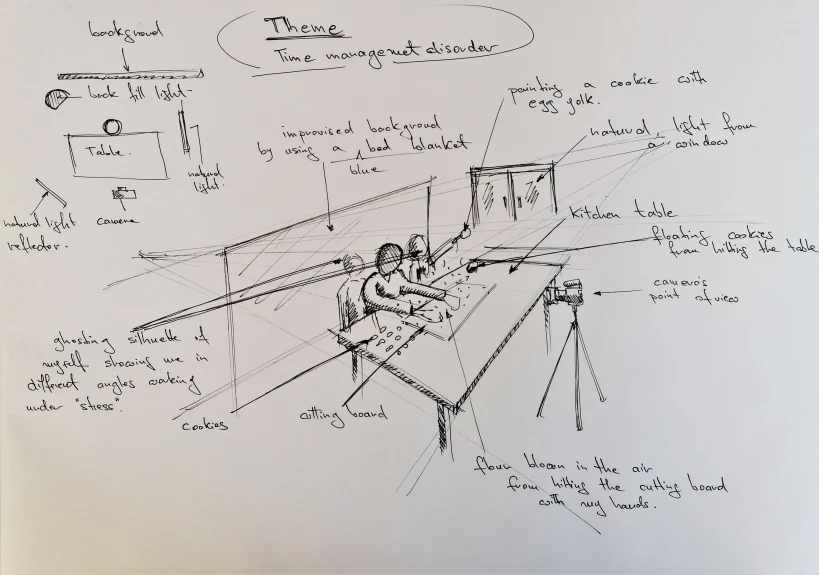 Theme
Time managemet disorder
background
back fill light
Table.
natural
light.
natural light
reflector.
camera
improvised background
by using a bed blanket
blue
painting a cookie with
egg yolk.
natural light from
a window
Kitchen table
floating cookies
from hitting the table
camera's
point of view
ghosting silhuete of
myself showing me in
different angles working
under "stress".
cookies
cutting board
flour blown in the air
from hitting the cutting board
with my hands.